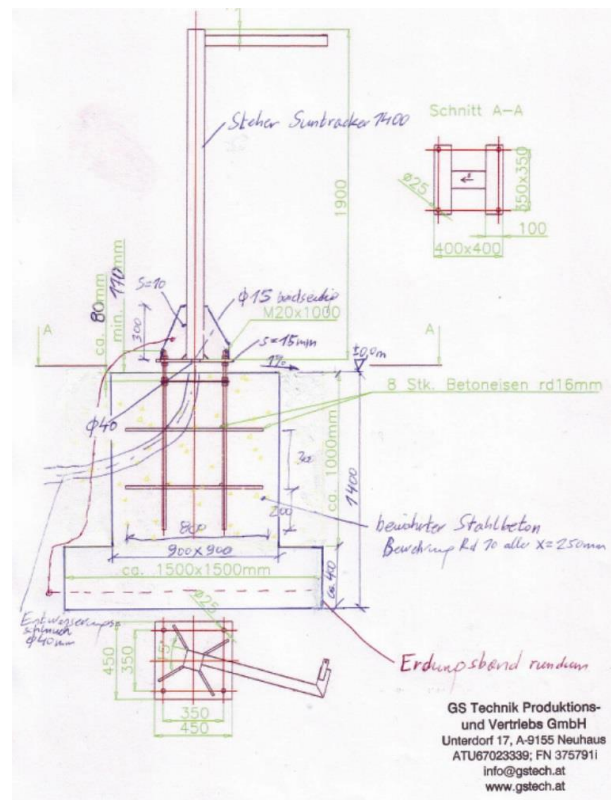 Steher Suntracker 1400
Schnitt A-A
ø25
350x350
100
400x400
1900
ca. 80mm
min. 110mm
S=10
300
ϕ15 beidseitig
M20x1000
s=15mm
A
A
1%
±0,0m
8 Stk. Betoneisen rd16mm
ϕ40
300
200
ca. 1000mm
1400
800
900x900
bewehrter Stahlbeton
Bewehrung Rd 10 alle x=250mm
ca. 1500x1500mm
ca. 400
Entwässerungs-
schlauch
ϕ40mm
ø25
450
350
350
450
Erdungsband rundum
GS Technik Produktions-
und Vertriebs GmbH
Unterdorf 17, A-9155 Neuhaus
ATU67023339; FN 375791i
info@gstech.at
www.gstech.at